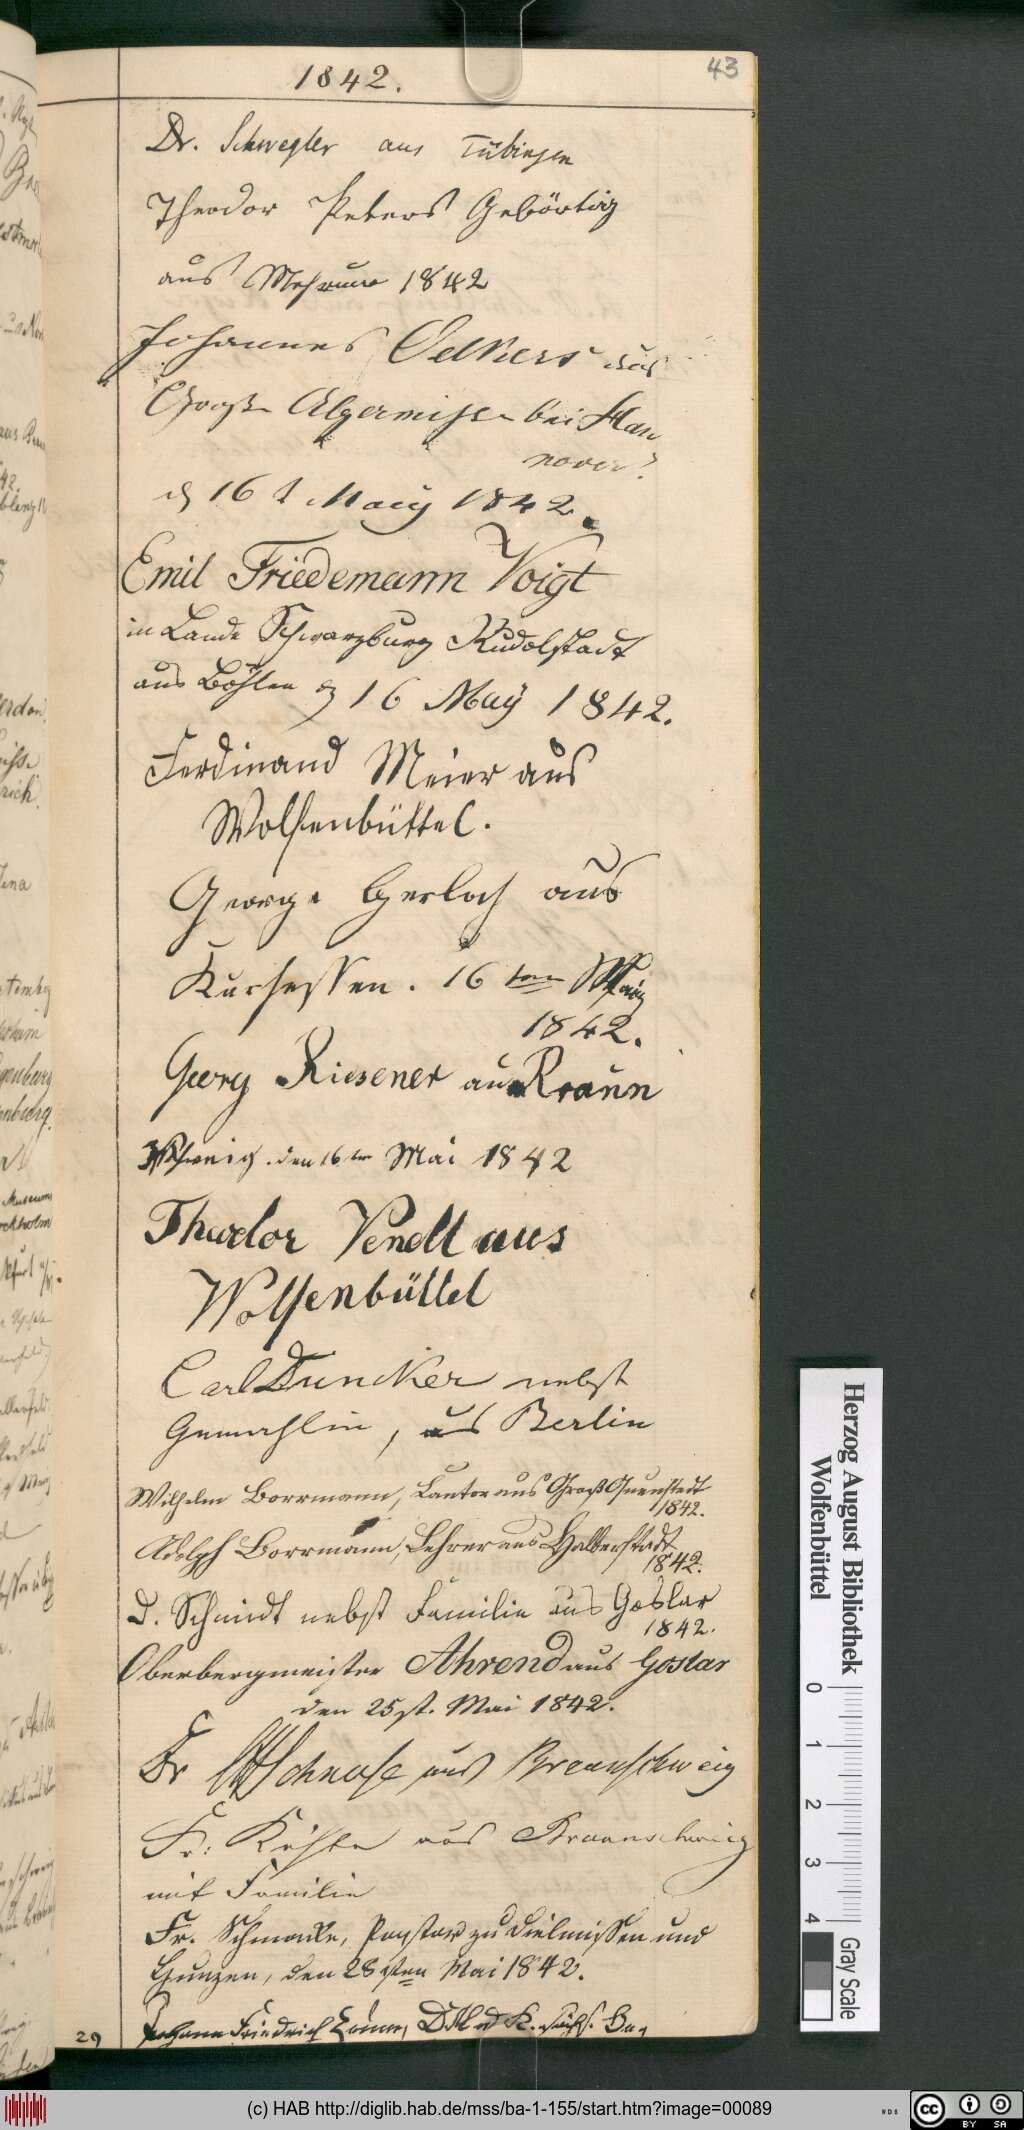 1842.
43
Dr. Schwegler aus Tübingen
Theodor Peters Gebörtig
aus Mehrum 1842
Johannes Oelkers aus
Gross Algermissen bei Han
nover
d 16 t Maiy 1842.
Emil Friedemann Voigt
in Lande Schwarzburg Rudolstadt
aus Böhlen d 16 May 1842.
Ferdinand Meier aus
Wolfenbüttel.
George Gerloch aus
Kurhessen. 16 ten May
1842.
Georg Riesener aus Braun
Schweig. den 16 ten Mai 1842
Theodor Vendt aus
Wolfenbüttel
Carl Duncker nebst
Gemahlin, aus Berlin
Wilhelm Borrmann, Cantor aus Groß Quenstedt
1842.
Adolph Borrmann, Lehrer aus Halberstadt
1842.
D. Schmidt nebst Familie aus Goslar
1842.
Oberbergmeister Ahrend aus Goslar
den 25st. Mai 1842.
Dr Schnase aus Braunschweig
Fr: aus Braunschweig
mit Familie
Fr. Schmacke, Pastor zu Dielmissen und
Hunzen, den 28sten Mai 1842.
Johann Friedrich K. sächs.
29
Herzog August Bibliothek
Wolfenbüttel
0 1 2 3 4
Gray Scale
(c) HAB http://diglib.hab.de/mss/ba-1-155/start.htm?image=00089
WDB
cc
BY SA